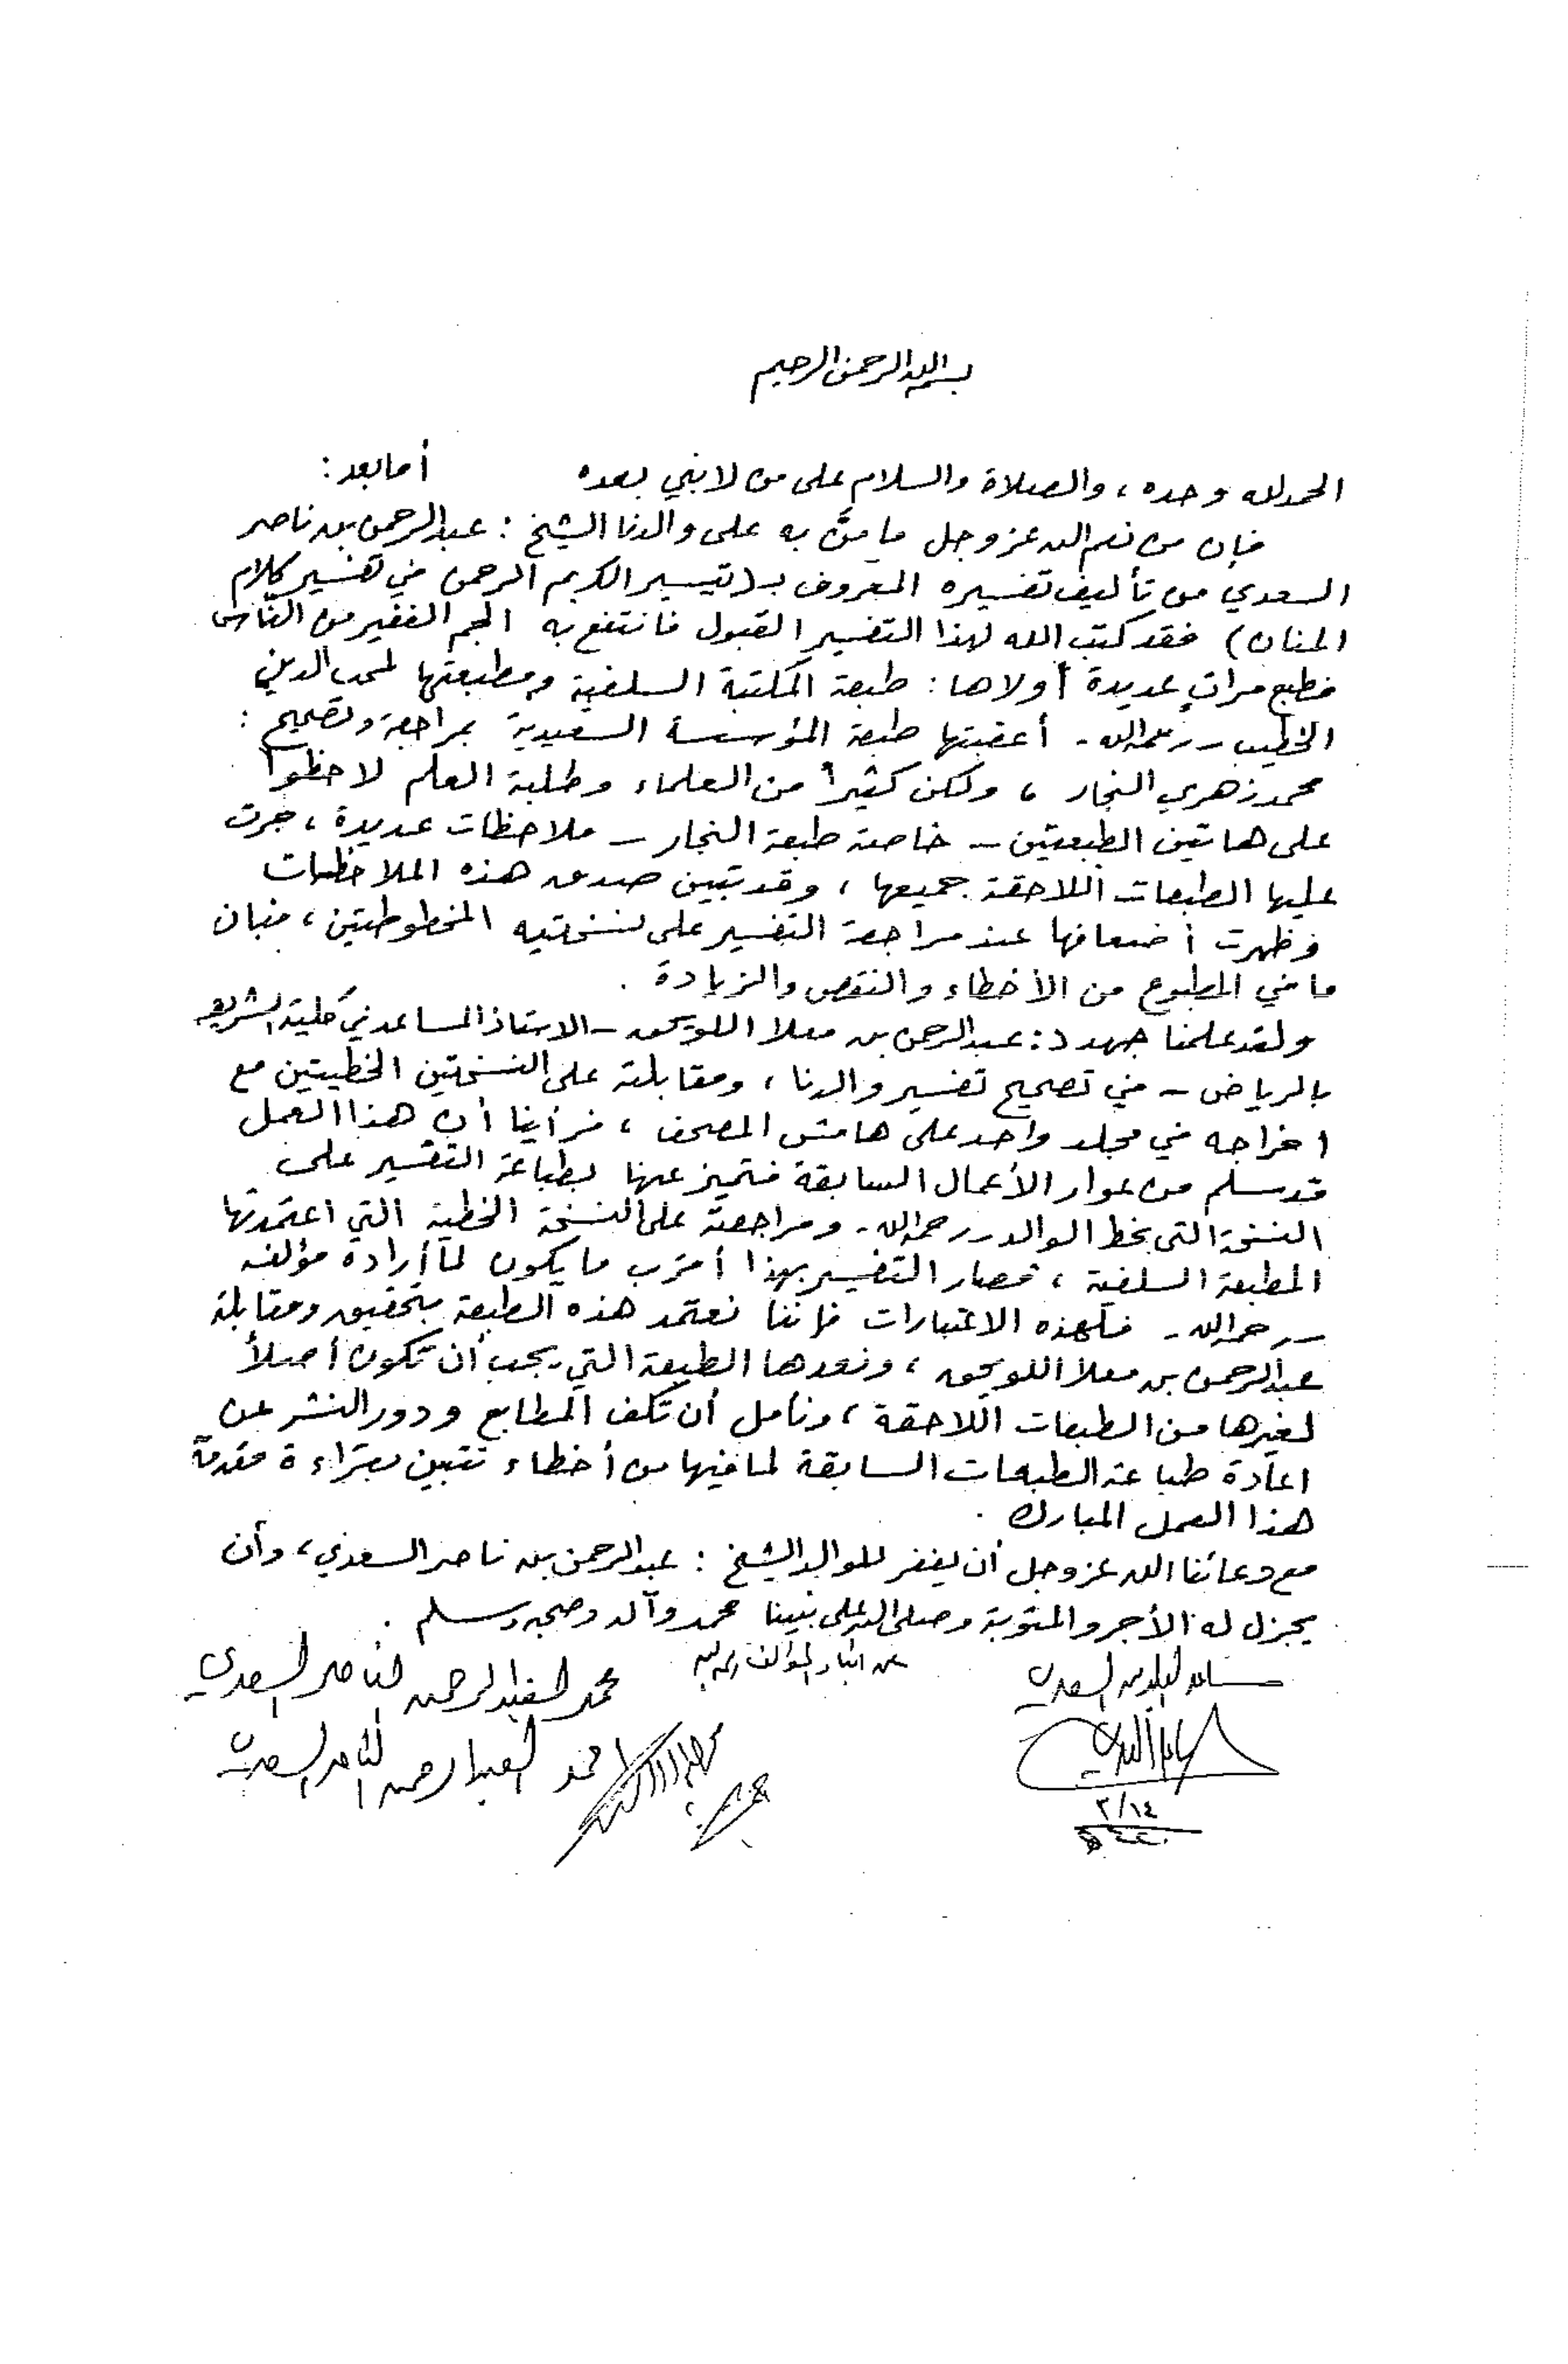 بسم الله الرحمن الرحيم
الحمد لله وحده، والصلاة والسلام على من لا نبي بعده أما بعد:
فإن من نعم الله عز وجل ما منَّ به على والدنا الشيخ: عبدالرحمن بن ناصر
السعدي من تأليف تفسيره المعروف بـ(تيسير الكريم الرحمن في تفسير كلام
المنان) فقد كتب الله لهذا التفسير القبول فانتفع به الجم الغفير من الناس
فطبع مراتٍ عديدة أولاها: طبعة المكتبة السلفية ومطبعتها لمحب الدين
الخطيب -رحمه الله- أعقبتها طبعة المؤسسة السعيدية بمراجعة وتصحيح:
محمد زهري النجار، ولكن كثيراً من العلماء وطلبة العلم لاحظوا
على هاتين الطبعتين - خاصة طبعة النجار - ملاحظات عديدة، جرت
عليها الطبعات اللاحقة جميعها، وقد تبين صدق هذه الملاحظات
وظهرت أضعافها عند مراجعة التفسير على نسختيه المخطوطتين، فبان
ما في المطبوع من الأخطاء والنقص والزيادة.
ولقد علمنا جهد د: عبدالرحمن بن معلا اللويحق - الاستاذ المساعد في كلية الشريعة
بالرياض - في تصحيح تفسير والدنا، ومقابلته على النسختين الخطيتين مع
اخراجه في مجلد واحد على هامش المصحف، فرأينا أن هذا العمل
قد سلم من عوار الأعمال السابقة فتميز عنها بطباعة التفسير على
النسخة التي بخط الوالد -رحمه الله- ومراجعته على النسخة الخطية التي اعتمدتها
المطبعة السلفية، فصار التفسير بهذا أقرب ما يكون لما أراده مؤلفه
-رحمه الله- فلهذه الاعتبارات فإننا نعتمد هذه الطبعة بتحقيق ومقابلة
عبدالرحمن بن معلا اللويحق، ونعدها الطبعة التي يجب أن تكون أصلاً
لغيرها من الطبعات اللاحقة، ونأمل أن تكف المطابع ودور النشر عن
اعادة طباعة الطبعات السابقة لما فيها من أخطاء تتبين بقراءة مقدمة
هذا العمل المبارك.
مع دعائنا الله عز وجل أن يغفر للوالد الشيخ: عبدالرحمن بن ناصر السعدي، وأن
يجزل له الأجر والمثوبة وصلى الله على نبينا محمد وآله وصحبه وسلم.
عن أبناء المؤلف رحمه الله
محمد العبدالرحمن الناصر السعدي
أحمد العبدالرحمن الناصر السعدي